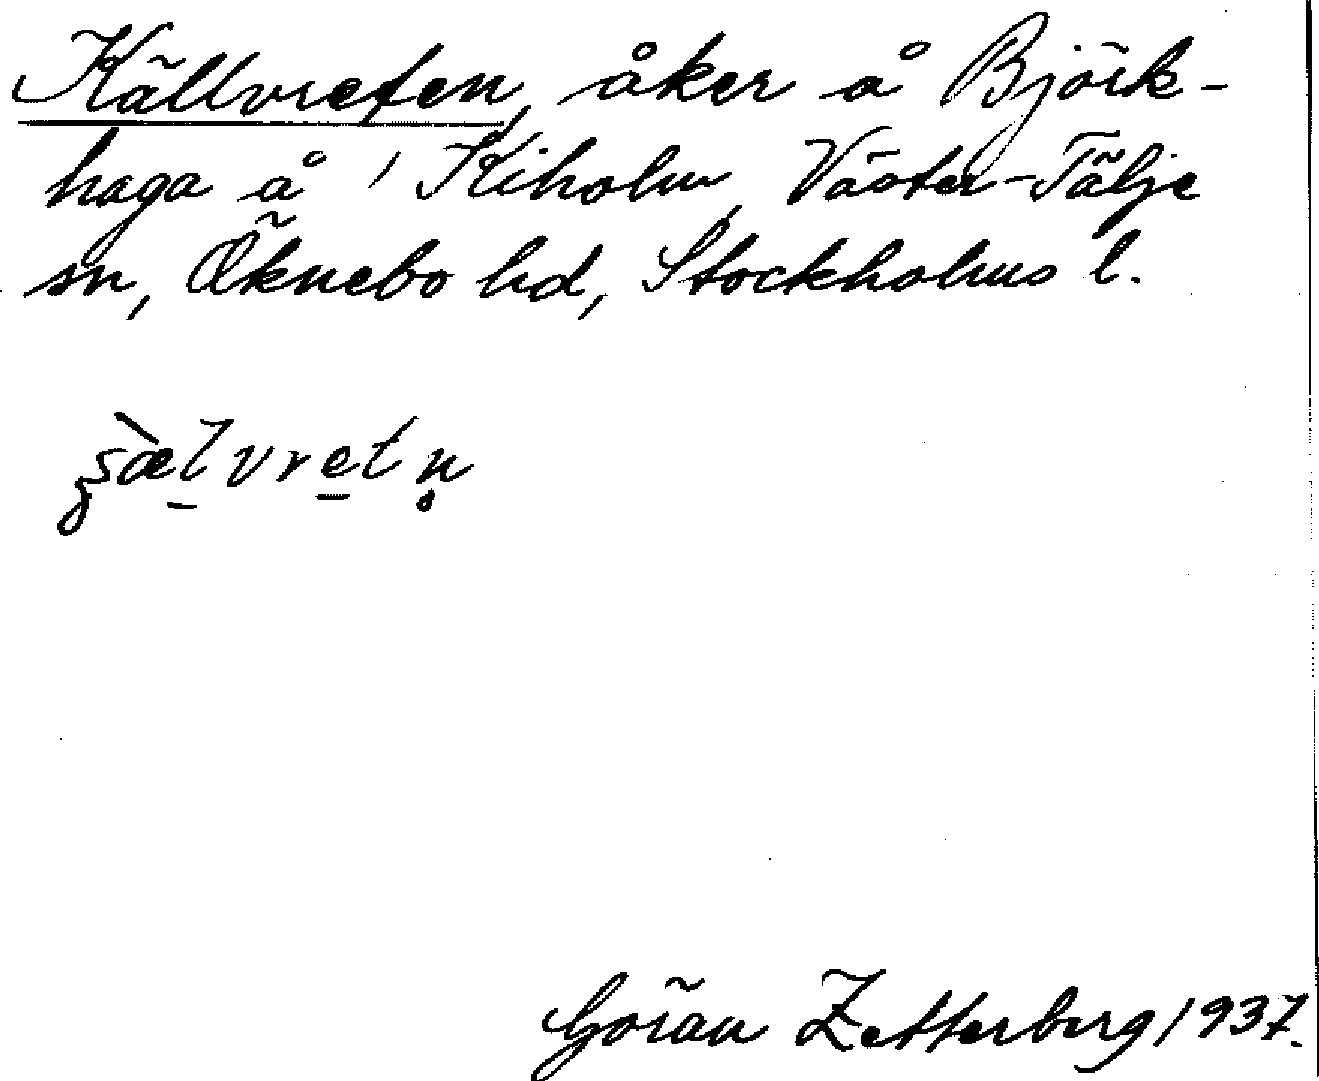 Källvreten, åker å Björk-
haga å Kiholm, Väster-Tälje
sn, Öknebo hd, Stockholms l.
Göran Zetterberg 1937.